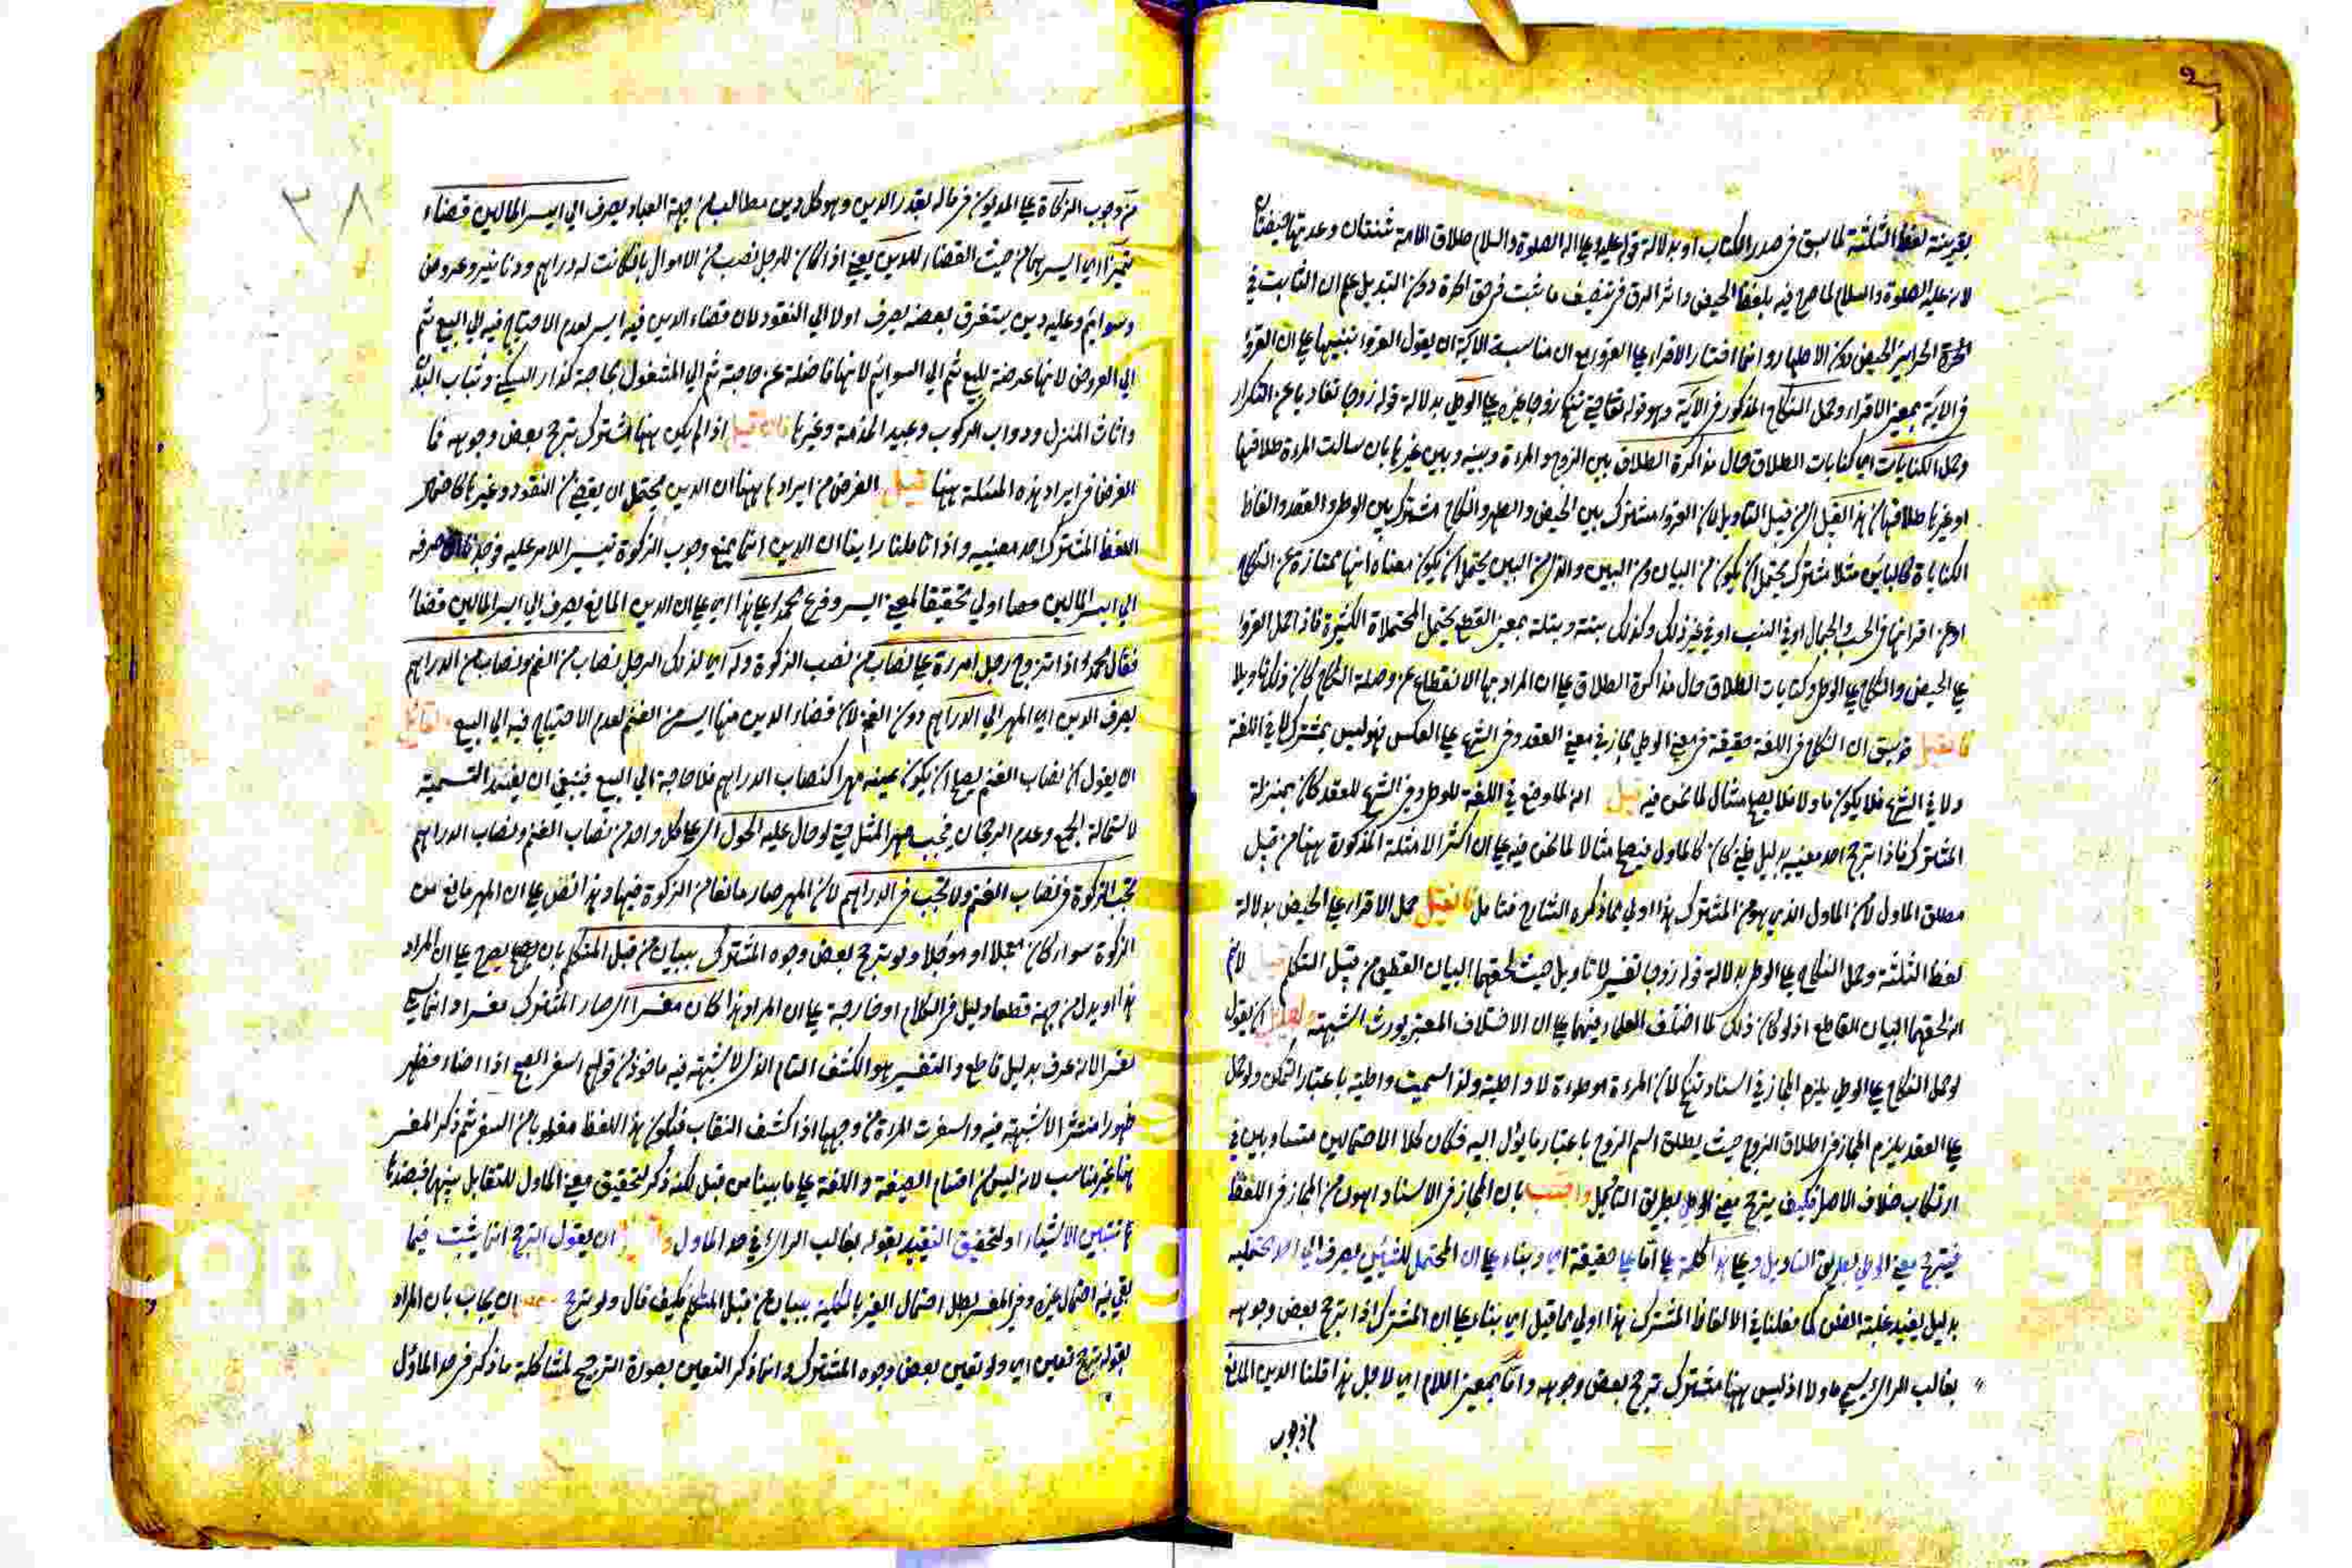 بقرينة لفظ الثلثة لما سبق في صدر الكتاب او بدلالة قوله عليه وعلى اله الصلوة والسلام طلاق الامة ثنتان وعدتها حيضتان
لانه عليه الصلوة والسلام لما صرح فيه بلفظ الحيض واثر الرق في تنصيف ما ثبت في حق الحرة دون التبديل علم ان الثابت في
الحرة الحرائر الحيض دون الاطهار وانما اختار الاقراء على القروء مع ان مناسبة الآية ان يقول القروء تنبيها على ان القروء
في الآية بمعنى الاقراء وحمل النكاح المذكور في الآية وهو قوله تعالى حتى تنكح زوجا غيره على الوطئ بدلالة قوله زوجا تفاديا عن التكرار
وحمل الكنايات اي كنايات الطلاق حال مذاكرة الطلاق بين الزوج والمرءة وبينه وبين غيرها بان سالت المرءة طلاقها
او غيرها طلاقها من هذا القبيل اي من قبيل التاويل لان القروء مشترك بين الحيض والطهر والنكاح مشترك بين الوطئ والعقد والفاظ
الكناية كالبائن مثلا مشترك يحتمل ان يكون من البيان ومن البين والذي من البين يحتمل ان يكون معناه انها ممتازة عن النكاح
او عن اقرانها في الحسن والجمال او في النسب او في غير ذلك وكذلك بتة وبتلة بمعنى القطع يحتمل المحتملاة الكثيرة فاذا حمل القروء
على الحيض والنكاح على الوطئ وكنايات الطلاق حال مذاكرة الطلاق على ان المراد بها الانقطاع عن وصلة النكاح كان ذلك تاويلا
فان قيل قد سبق ان النكاح في اللغة حقيقة في معنى الوطئ مجاز في معنى العقد وفي الشرع على العكس فهو ليس بمشترك لا في اللغة
ولا في الشرع فلا يكون ماولا فلا يصلح مثالا لما نحن فيه قيل انه لما وضع في اللغة للوطئ وفي الشرع للعقد كان بمنزلة
المشترك فاذا ترجح احد معنييه بدليل ظني كان كالماول فيصلح مثالا لما نحن فيه على ان اكثر الامثلة المذكورة ههنا من قبيل
مطلق الماول لان الماول الذي هو من المشترك هذا اولى مما ذكره الشارح فتامل فان قيل حمل الاقراء على الحيض بدلالة
لفظ الثلثة وحمل النكاح على الوطئ بدلالة قوله زوجا تفسير لا تاويل حيث لحقهما البيان القطعي من قبل المتكلم قيل لانم
انه لحقهما البيان القاطع اذ لو كان ذلك لما اختلف العلماء فيهما على ان الاختلاف المعتبر يورث الشبهة ولقائل ان يقول
لو حمل النكاح على الوطئ يلزم المجاز في اسناد تنكح لان المرءة موطوءة لا واطئة ولذا سميت واطئة باعتبار التمكن ولو حمل
على العقد يلزم المجاز في اطلاق الزوج حيث يطلق اسم الزوج باعتبار ما يؤل اليه فكان كلا الاحتمالين متساويين في
ارتكاب خلاف الاصل فكيف يترجح معنى الوطئ بطريق التاويل واجيب بان المجاز في الاسناد اهون من المجاز في اللفظ
فيترجح معنى الوطئ بطريق التاويل وعلى هذا كلمة على اما على حقيقة اي وبناء على ان المحتمل للشيئين يصرف الى احد محتمليه
بدليل يفيد غلبة الظن كما فعلنا في الالفاظ المشترك هذا اولى مما قيل اي بناء على ان المشترك اذا ترجح بعض وجوهه
بغالب الراي يسمى ماولا اذ ليس ههنا مشترك ترجح بعض وجوهه واما بمعنى اللام اي لاجل هذا قلنا الدين المانع
من وجوب
٣٨
من وجوب الزكاة على المديون في ماله بقدر الدين وهو كل دين مطالب من جهة العباد يصرف الى ايسر المالين قضاء
تمييز اي ايسرهما من حيث القضاء للدين يعني اذا كان للرجل نصب من الاموال بان كانت له دراهم ودنانير وعروض
وسوائم وعليه دين يستغرق بعضه يصرف اولا الى النقود لان قضاء الدين فيه ايسر لعدم الاحتياج فيه الى البيع ثم
الى العروض لانها عرضة للبيع ثم الى السوائم لانها فاضلة عن حاجته ثم الى المشغول بحاجة كدار السكنى وثياب البدن
واثاث المنزل ودواب الركوب وعبيد الخدمة وغيرها فان قيل اذا لم يكن ههنا مشترك يترجح بعض وجوهه فما
الغرض في ايراد هذه المسئلة ههنا قيل الغرض من ايرادها ههنا ان الدين يحتمل ان يقضى من النقود وغيرها كاحتمال
اللفظ المشترك احد معنييه واذا تاملنا راينا ان الدين انما يمنع وجوب الزكوة تيسير الامر عليه صرفه
الى ايسر المالين اولى تحقيقا لمعنى اليسر وفرع محمد على هذا اي على ان الدين المانع يصرف الى ايسر المالين قضاء
فقال محمد اذا تزوج رجل امرءة على نصاب من نصب الزكوة وله اي لذلك الرجل نصاب من الغنم ونصاب من الدراهم
يصرف الدين اي المهر الى الدراهم دون الغنم لان قضاء الدين منها ايسر من الغنم لعدم الاحتياج فيه الى البيع ولقائل
ان يقول ان نصاب الغنم يصلح ان يكون بعينه مهرا كنصاب الدراهم فلا حاجة الى البيع فينبغي ان يفسد التسمية
لاستحالة الجمع وعدم الرجحان فيجب مهر المثل حتى لو حال عليه الحول اي على كل واحد من نصاب الغنم ونصاب الدراهم
تجب الزكوة في نصاب الغنم ولا تجب في الدراهم لان المهر صار مانعا من الزكوة فيها وهذا نص على ان المهر مانع من
الزكوة سواء كان معجلا او موجلا ولو ترجح بعض وجوه المشترك ببيان من قبل المتكلم بان يصرح على ان المراد
هذا او يدل من جهته قطعا دليل في الكلام او خارجه على ان المراد هذا كان مفسرا اي صار المشترك مفسرا وانما سمي
مفسرا لانه عرف بدليل قاطع والتفسير هو الكشف التام الذي لا شبهة فيه ماخوذ من قولهم اسفر الصبح اذا اضاء وظهر
ظهورا منتشرا لا شبهة فيه واسفرت المرءة عن وجهها اذا كشف النقاب فيكون هذا اللفظ مقلوبا من السفر ثم ذكر المفسر
ههنا غير مناسب لانه ليس من اقسام الصيغة واللغة على ما بينا من قبل لكنه ذكر لتحقيق معنى الماول للتقابل بينهما فبضدها
تتبين الاشياء او لتحقيق التقييد بقوله بغالب الراي في حد الماول ولقائل ان يقول الترجح انما يثبت فيما
بقي فيه احتمال غيره وفي المفسر بطل احتمال الغير بالكلية ببيان من قبل المتكلم فكيف قال ولو ترجح ان يجاب بان المراد
بقوله ترجح تعين اي ولو تعين بعض وجوه المشترك وانما ذكر التعين بصورة الترجيح لمشاكلة ما ذكر في حد الماول